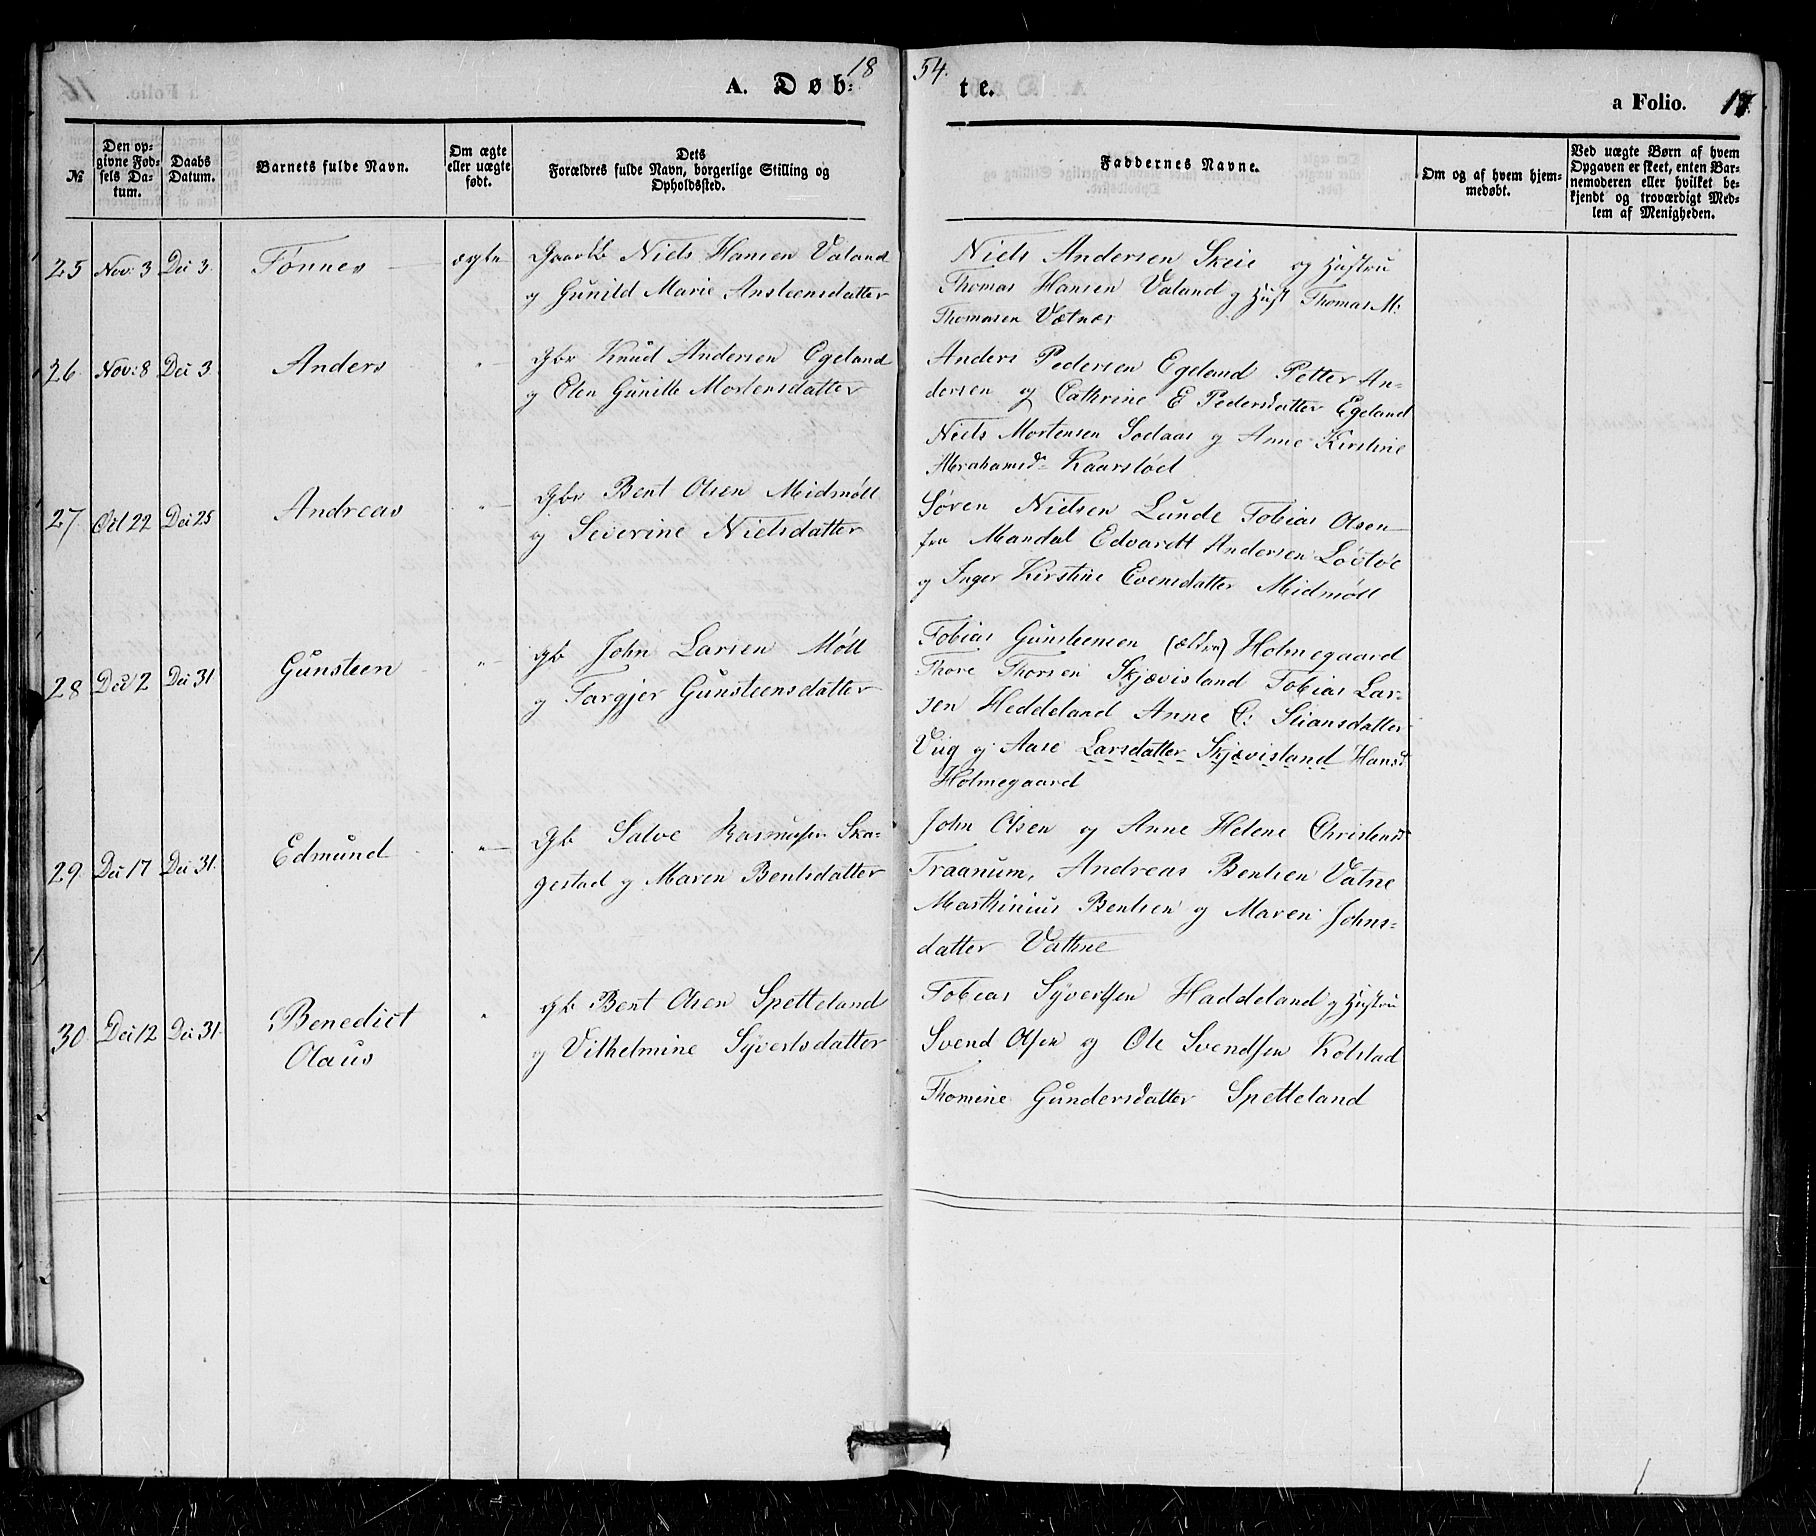 A. Døb: 18 54. te. a Folio. 17.
№
Den opgivne Fødsels Datum.
Daabs Datum.
Barnets fulde Navn.
Om ægte eller uægte født.
Dets Forældres fulde Navn, borgerlige Stilling og Opholdssted.
Faddernes Navne.
Om og af hvem hjemmedøbt.
Ved uægte Børn af hvem Opgaven er skeet, enten Barnemoderen eller hvilket bekjendt og troværdigt Medlem af Menigheden.
25 Nov: 3 Dec 3. Tønnes ægte
Gaardb Niels Hansen Valand
og Gunild Marie Ansteensdatter
Niels Andersen Skeie og Hustru
Thomas Hansen Valand og Hust Thomas M:
Thomasen Vatnes
26 Nov: 8 Dec 3 Anders "
Gbr Knud Andersen Egeland
og Elen Gunille Mortensdatter
Anders Pedersen Egeland Petter An-
dersen og Cathrine E Pedersdatter Egeland
Niels Mortensen Sodaas og Anne Kirstine
Abrahamsd. Kaarstød
27 Oct 22 Dec 25 Andreas "
Gbr Bent Olsen Midmøll
og Severine Nielsdatter
Søren Nielsen Lunde Tobias Olsen
fra Mandal Edvardt Andersen Løvløe
og Inger Kirstine Evensdatter Midmøll
28 Dec 2 Dec 31 Gunsteen "
gb John Larsen Møll
og Targjer Gunsteensdatter
Tobias Gunsteensen (ældre) Holmegaard
Thore Thorsen Skjævisland Tobias Lar-
sen Heddeland Anne C: Stiansdatter
Viig og Aase Larsdatter Skjævisland Hans
Holmegaard
29. Dec 17 Dec 31. Edmund "
Gb Salve Rasmussen Ska-
gestad og Maren Bentsdatter
John Olsen og Anne Helene Christensd
Traanum, Andreas Bentsen Vatne
Marthinius Bentsen og Maren Johns-
datter Vathne
30 Dec 12 Dec 31. Benedict "
Olaus
gb Bent Olsen Spetteland
og Vilhelmine Syvertsdatter
Tobias Syvertsen Haddeland og Hustru
Svend Olsen og Ole Svendsen Kolstad
Thomine Gundersdatter Spetteland